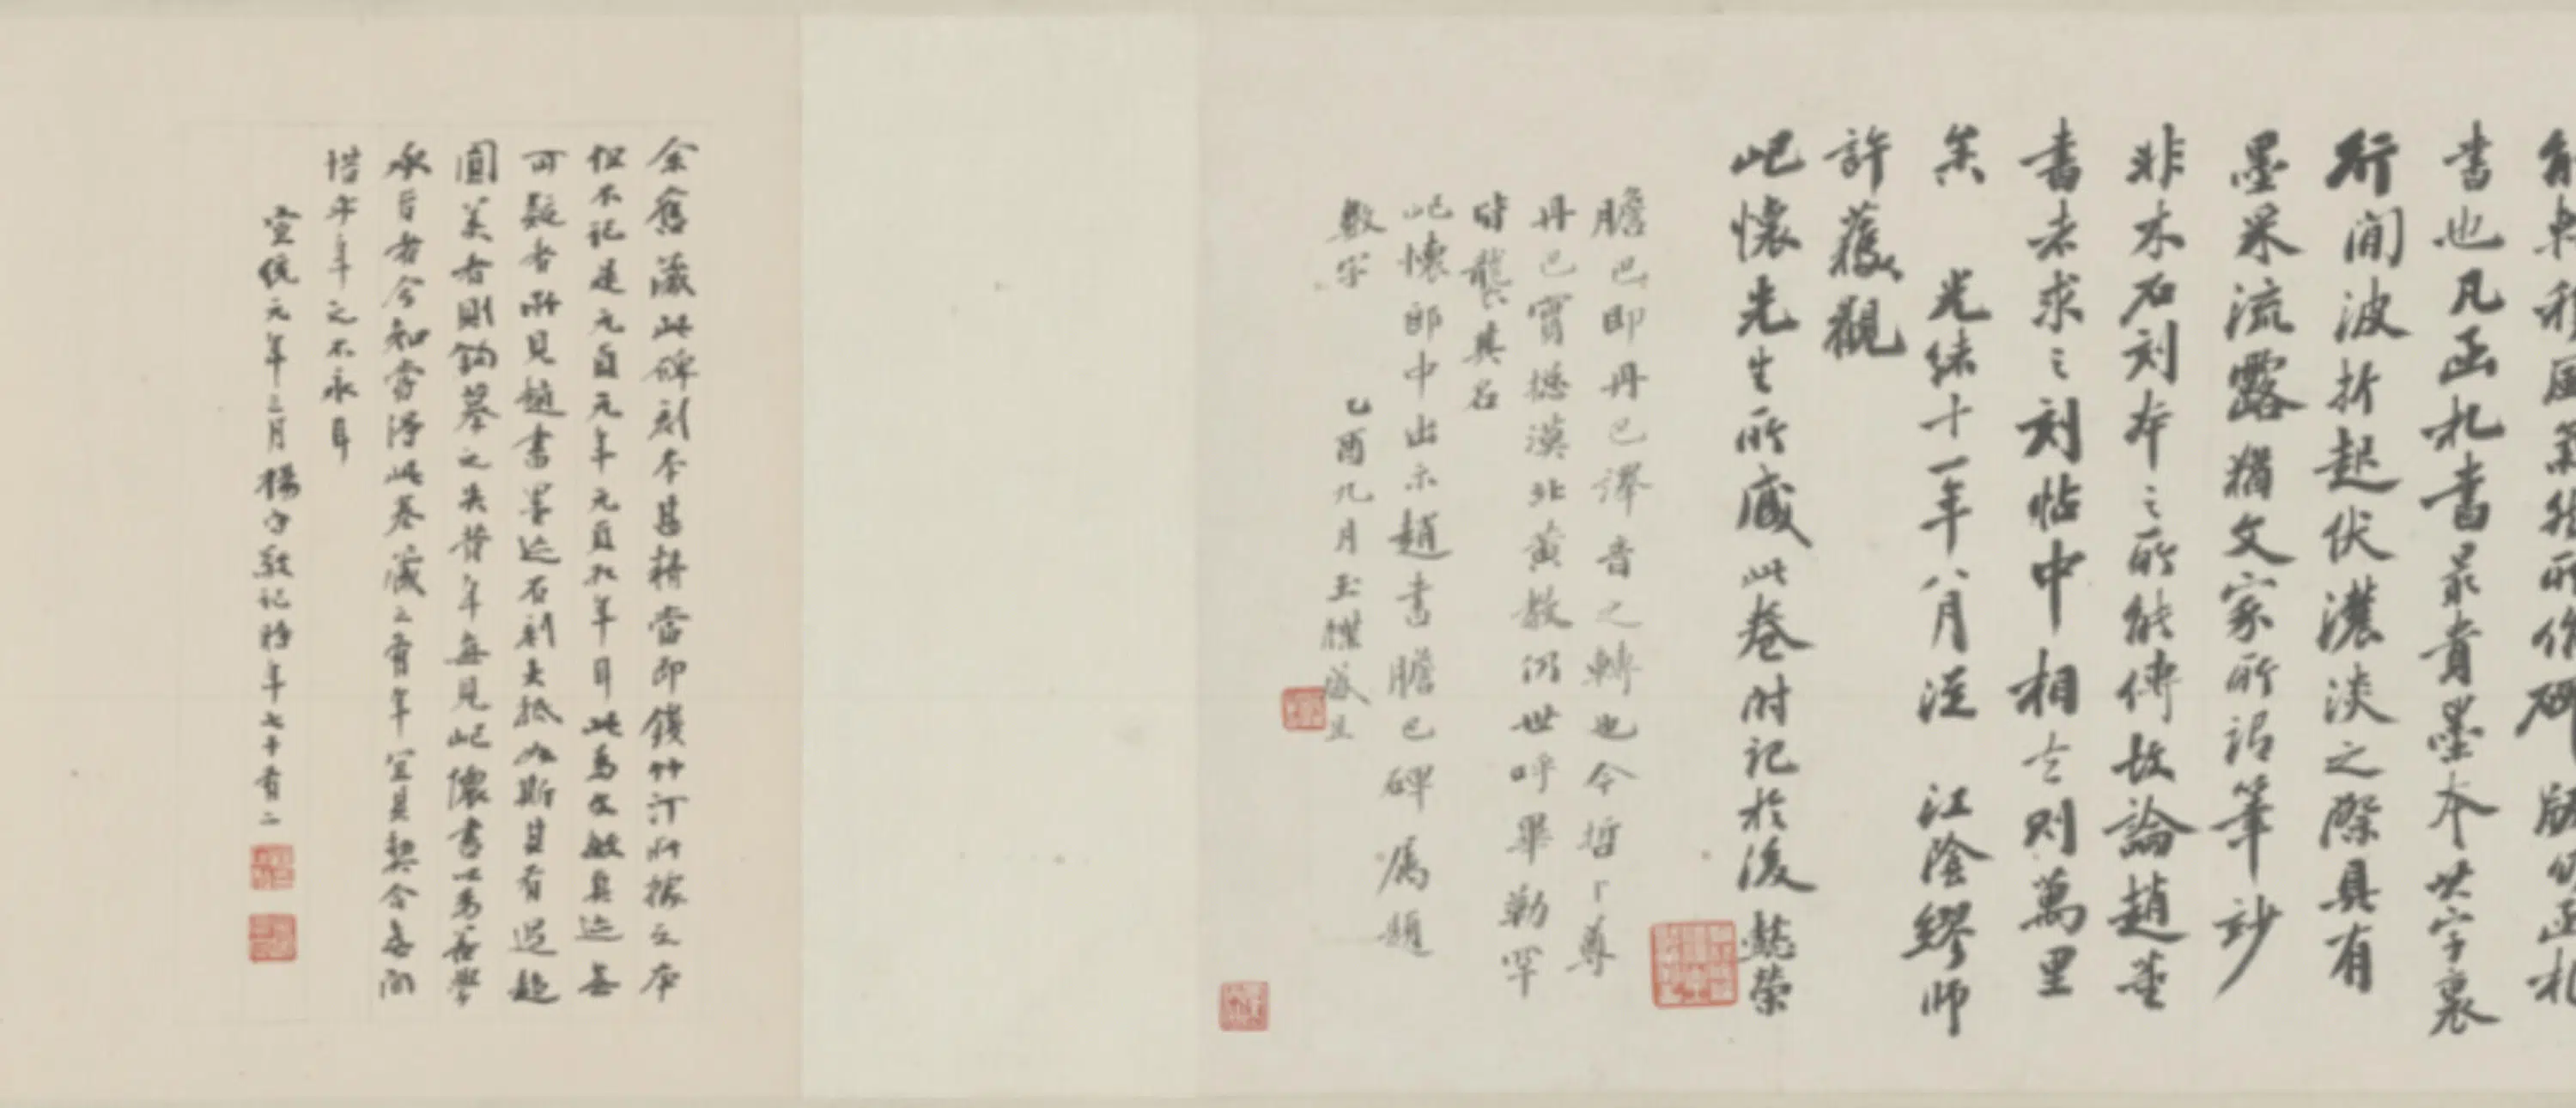 書也凡函札書最貴墨本其字裏
行間波折起伏濃淡之際具有
墨采流露猶文家所謂筆妙
非木石刻本之所能傳故論趙董
書者求之刻帖中相去則萬里
矣 光緒十一年八月從 江陰繆師
許獲觀
屺懷先生所藏此卷附記於後 懿榮
膽巴即丹巴譯音之轉也今哲卜尊
丹巴實總漠北黃教仍世呼畢勒罕
時襲其名
屺懷郎中出示趙書膽巴碑屬題
數字 乙酉九月玉牒盛昱
余舊藏此碑刻本甚精當即錢竹汀所據之本
但不記是元貞元年元貞九年耳此為文敏真迹無
可疑者所見趙書墨迹石刻大抵如斯其有過趨
圓美者則鈎摹之失昔年每見屺懷書以為善學
承旨者今知當得此卷藏之有年宜其契合無間
惜乎年之不永耳
宣統元年三月楊守敬記時年七十有二